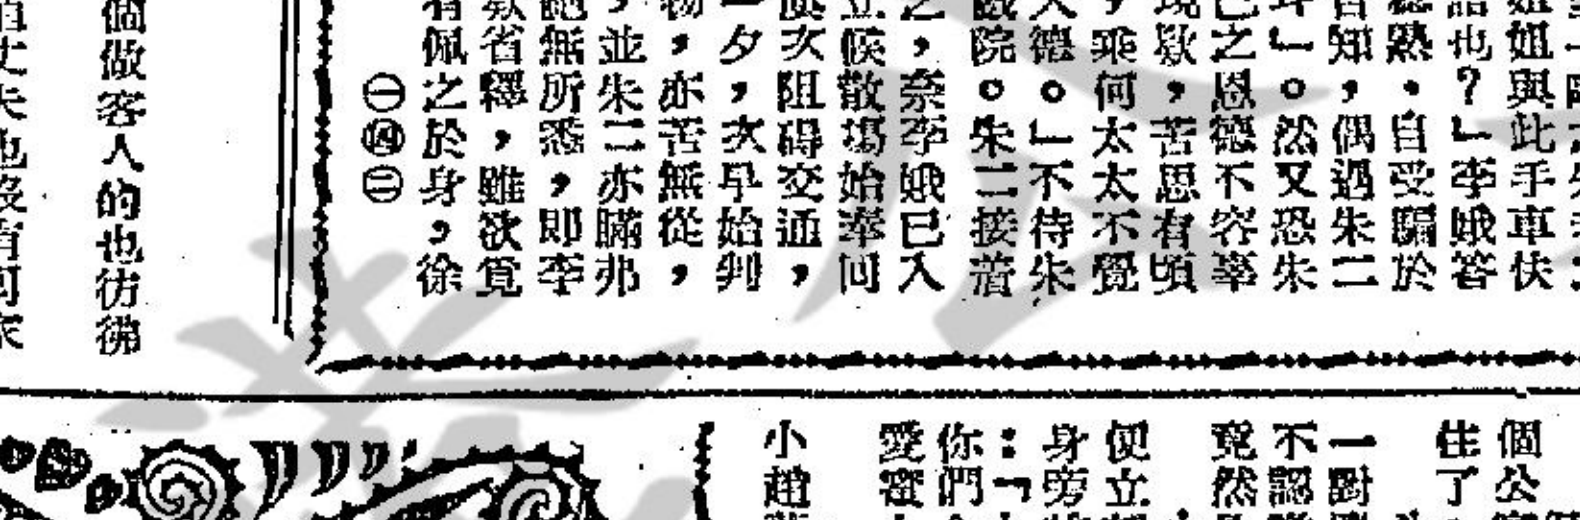 姐姐與此手車伕
語也？」李娥答
聽熟，自受騙於
皆知，偶遇朱二
耳」。然又恐朱
己之恩德不容辜
現欵，苦思有頃
，乘何太太不覺
大德。」不待朱
戲院。朱二接着
之，奈李娥已入
立候散塲始奉回
度次阻碍交通，
一夕，次早始判
物，亦苦無從，
，並朱二亦瞞弗
絕無所悉，即李
欵省釋，雖欲覓
有佩之於身，徐
㊀㊃㊁
個做客人的也彷彿
個公
住了
一對
不認
竟然
便立
身旁
：「
你們
愛
小趙